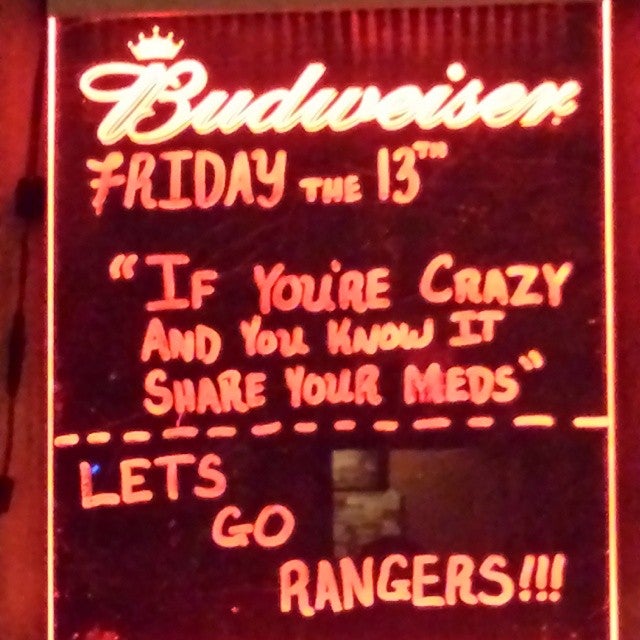 Budweiser
FRIDAY THE 13TH
"IF YOU'RE CRAZY
AND YOU KNOW IT
SHARE YOUR MEDS"
LETS
GO
RANGERS!!!